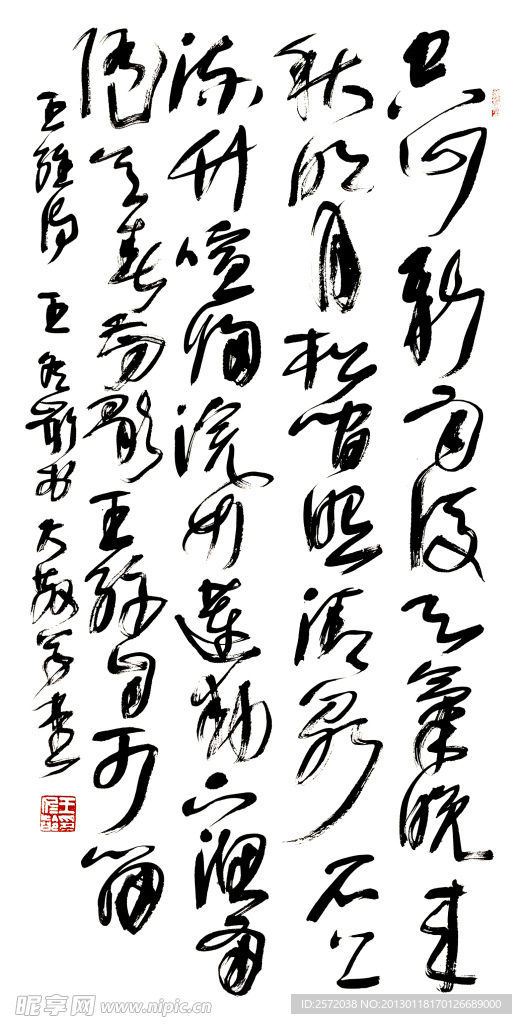 空山新雨後天氣晚来
秋明月松間照清泉石上
流竹喧歸浣女蓮動下漁舟
随意春芳歇王孫自可留
王維詩 王冬齡书大散草堂
昵享网 www.nipic.cn
ID:2572038 NO:20130118170126689000